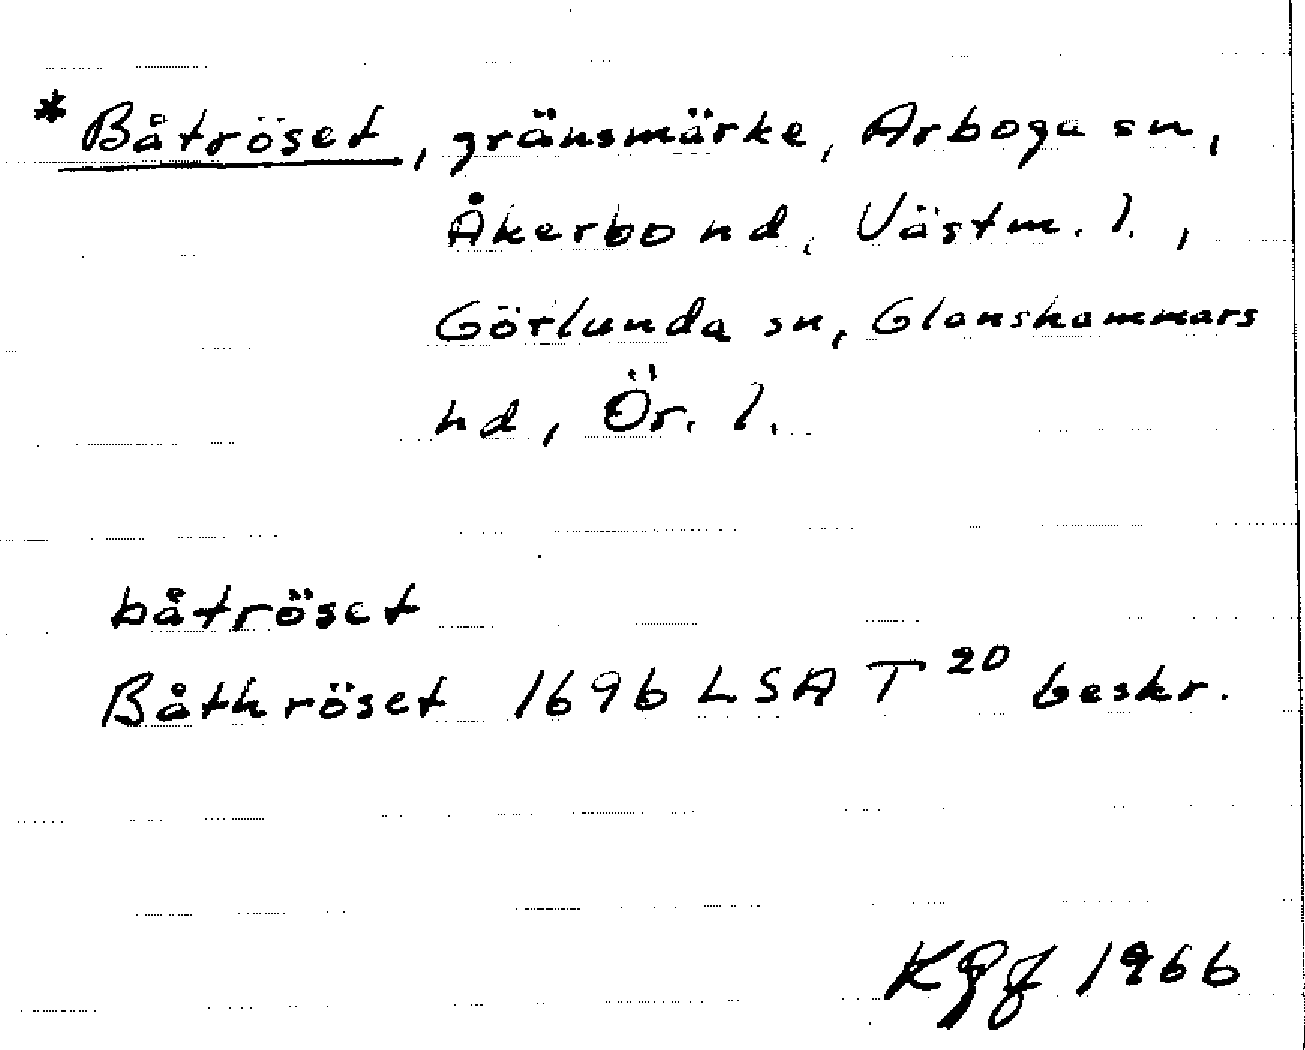 * Båtröset, gränsmärke, Arboga sn,
Åkerbo hd, Västm. l.,
Götlunda sn, Glanshammars
hd, Ör. l.
båtröset
Båthröset 1696 LSA T 20 beskr.
1966